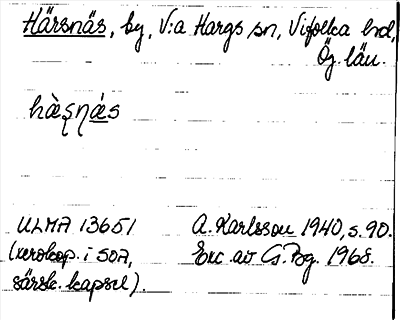 Härsnäs, by, V:a Hargs sn, Vifolka hd,
Ög. län.
hàʂɳás
ULMA 13651 A. Karlsson 1940, s. 90.
(xerokop. i SOA, Exc. av G. Bg. 1968.
särsk. kapsel).